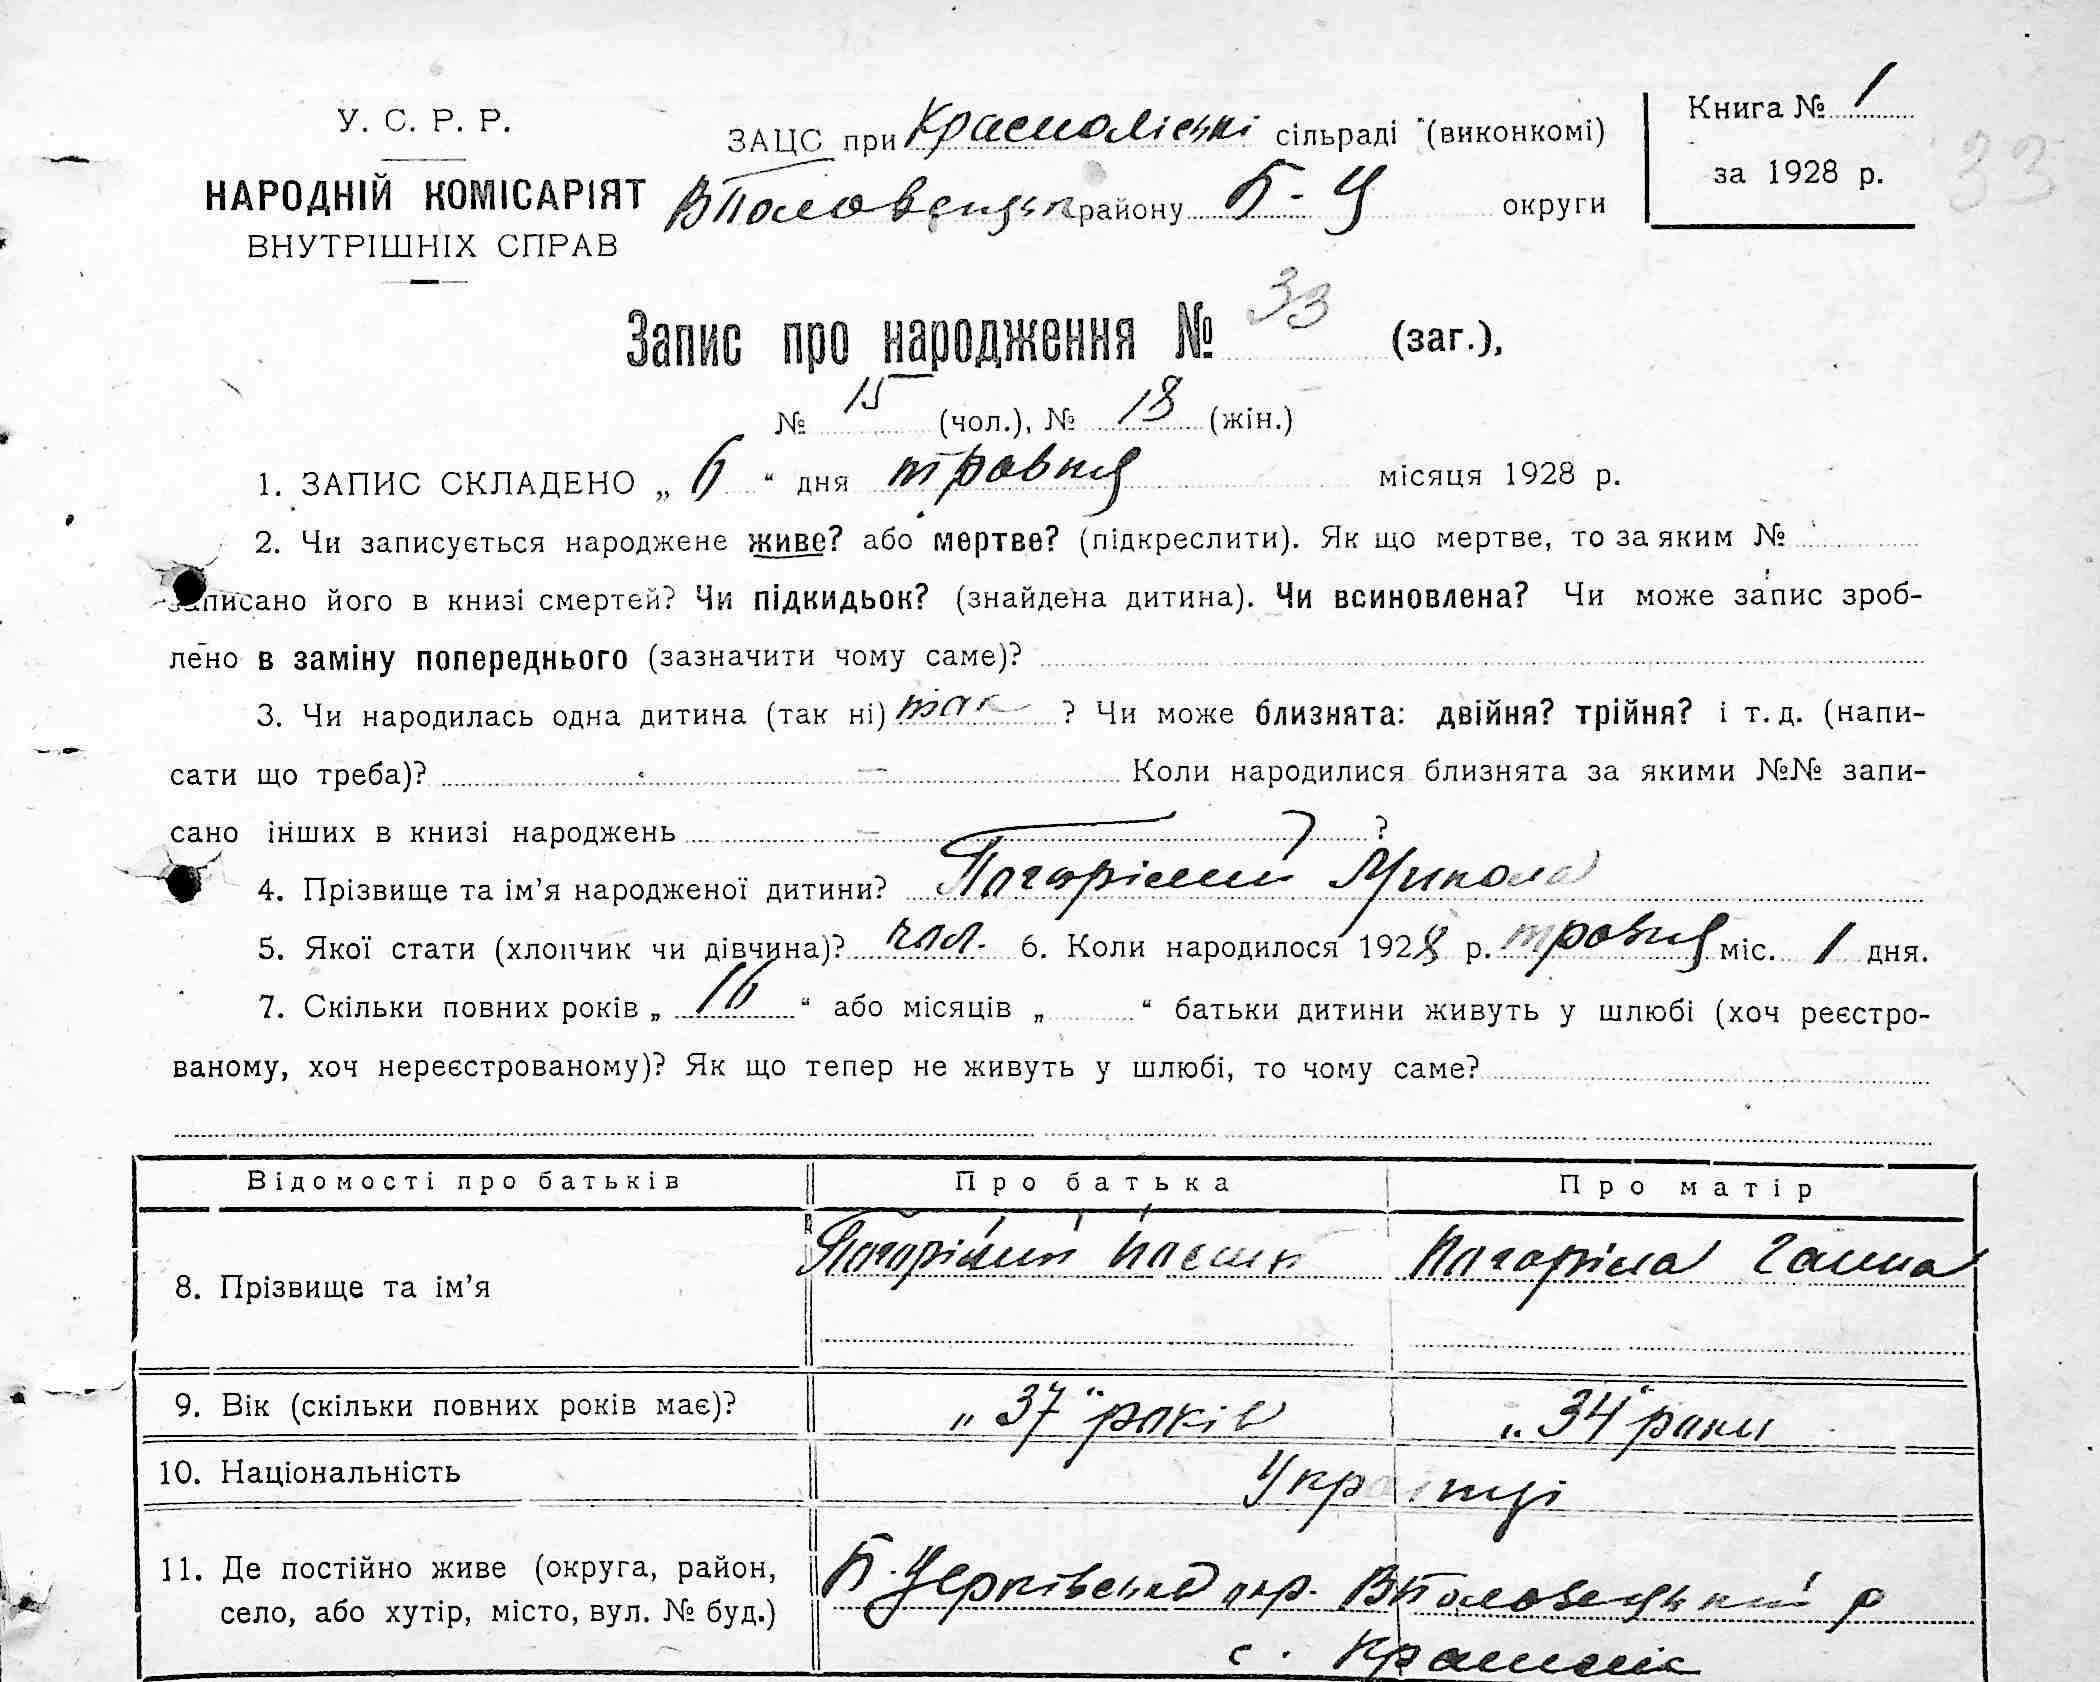 У. С. Р. Р.
НАРОДНІЙ КОМІСАРІЯТ
ВНУТРІШНІХ СПРАВ
ЗАЦС при Красноліські сільраді (виконкомі)
ВПоловецьк району Б-Ц округи
Книга № 1
за 1928 р.
33
Запис про народження № 33 (заг.),
№ 15 (чол.), № 18 (жін.)
1. ЗАПИС СКЛАДЕНО „ 6 “ дня травня місяця 1928 р.
2. Чи записується народжене живе? або мертве? (підкреслити). Як що мертве, то за яким №
записано його в книзі смертей? Чи підкидьок? (знайдена дитина). Чи всиновлена? Чи може запис зроб-
лено в заміну попереднього (зазначити чому саме)?
3. Чи народилась одна дитина (так ні) так ? Чи може близнята: двійня? трійня? і т. д. (напи-
сати що треба)? — Коли народилися близнята за якими №№ запи-
сано інших в книзі народжень — ?
4. Прізвище та ім’я народженої дитини? Погорілий Микола
5. Якої стати (хлопчик чи дівчина)? чол. 6. Коли народилося 1928 р. травня міс. 1 дня.
7. Скільки повних років „ 16 “ або місяців „ “ батьки дитини живуть у шлюбі (хоч реєстро-
ваному, хоч нереєстрованому)? Як що тепер не живуть у шлюбі, то чому саме?
Відомості про батьків Про батька Про матір
8. Прізвище та ім’я Погорілий Погоріла Ганна
9. Вік (скільки повних років має)? „37“ років „34“ роки
10. Національність Українці
11. Де постійно живе (округа, район,
село, або хутір, місто, вул. № буд.)
Б.Церківської окр. ВПоловецький р
с.